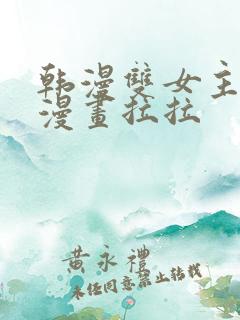 韩漫雙女主
漫畫拉拉
黄永禮
未经同意禁止转载